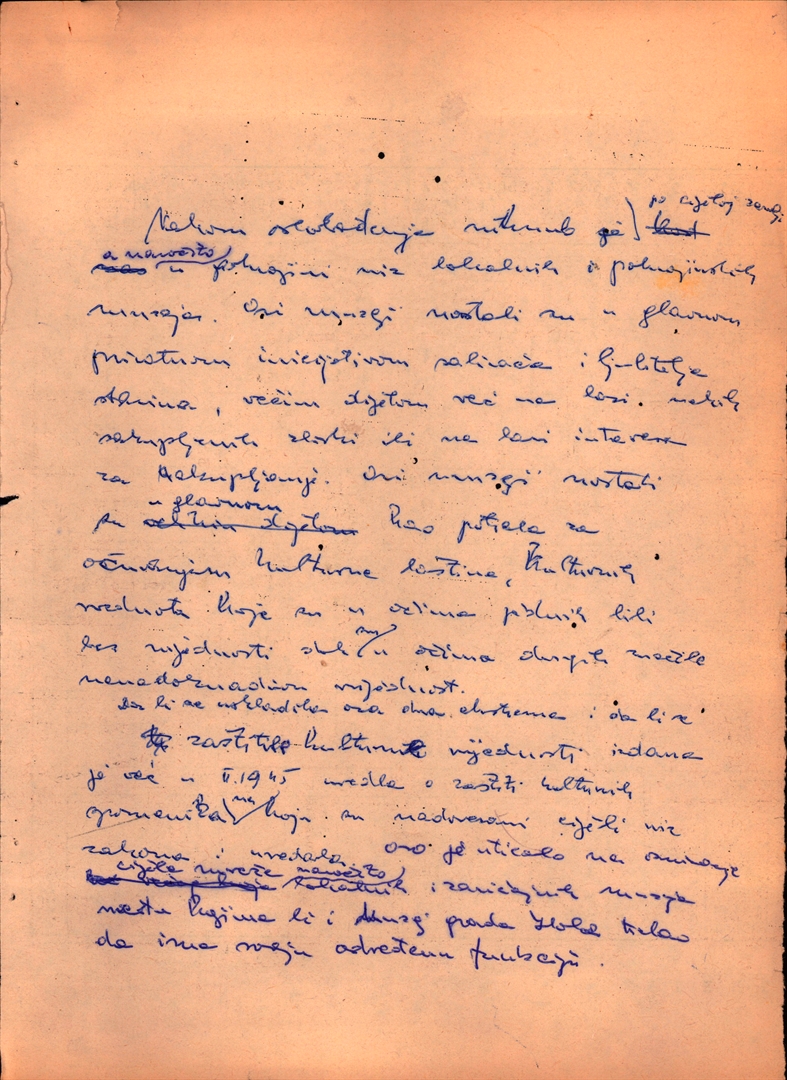 Nakon oslobođenja nikнub je po cijeloj zemlji
a naročito u pokrajini niz lokalnih i pokrajinskih
muzeja. Ovi muzeji nastali su u glavnom
privatnom inicijativom sabirača i ljubitelja
starina, većim dijelom već na bazi nekih
sakupljenih zbirki ili na bazi interesa
za sakupljanje. Ovi muzeji nastali
su u glavnom kao potreba za
očuvanjem kulturne baštine, kulturnih
vrednota koje su u očima jednih bili
bez vrijednosti dok su u očima drugih značile
nenadoknadivu vrijednost.
Da bi se uskladila ova dva ekstrema i da bi se
zaštitile kulturne vrijednosti izdana
je već u II.1945 uredba o zaštiti kulturnih
spomenika na koju su nadovezani cijeli niz
zakona i uredaba. Ovo je uticalo na osnivanje
cijele mreže naročito lokalnih i zavičajnih muzeja
među kojima bi i Muzej grada Iloka trebao
da ima svoju određenu funkciju.